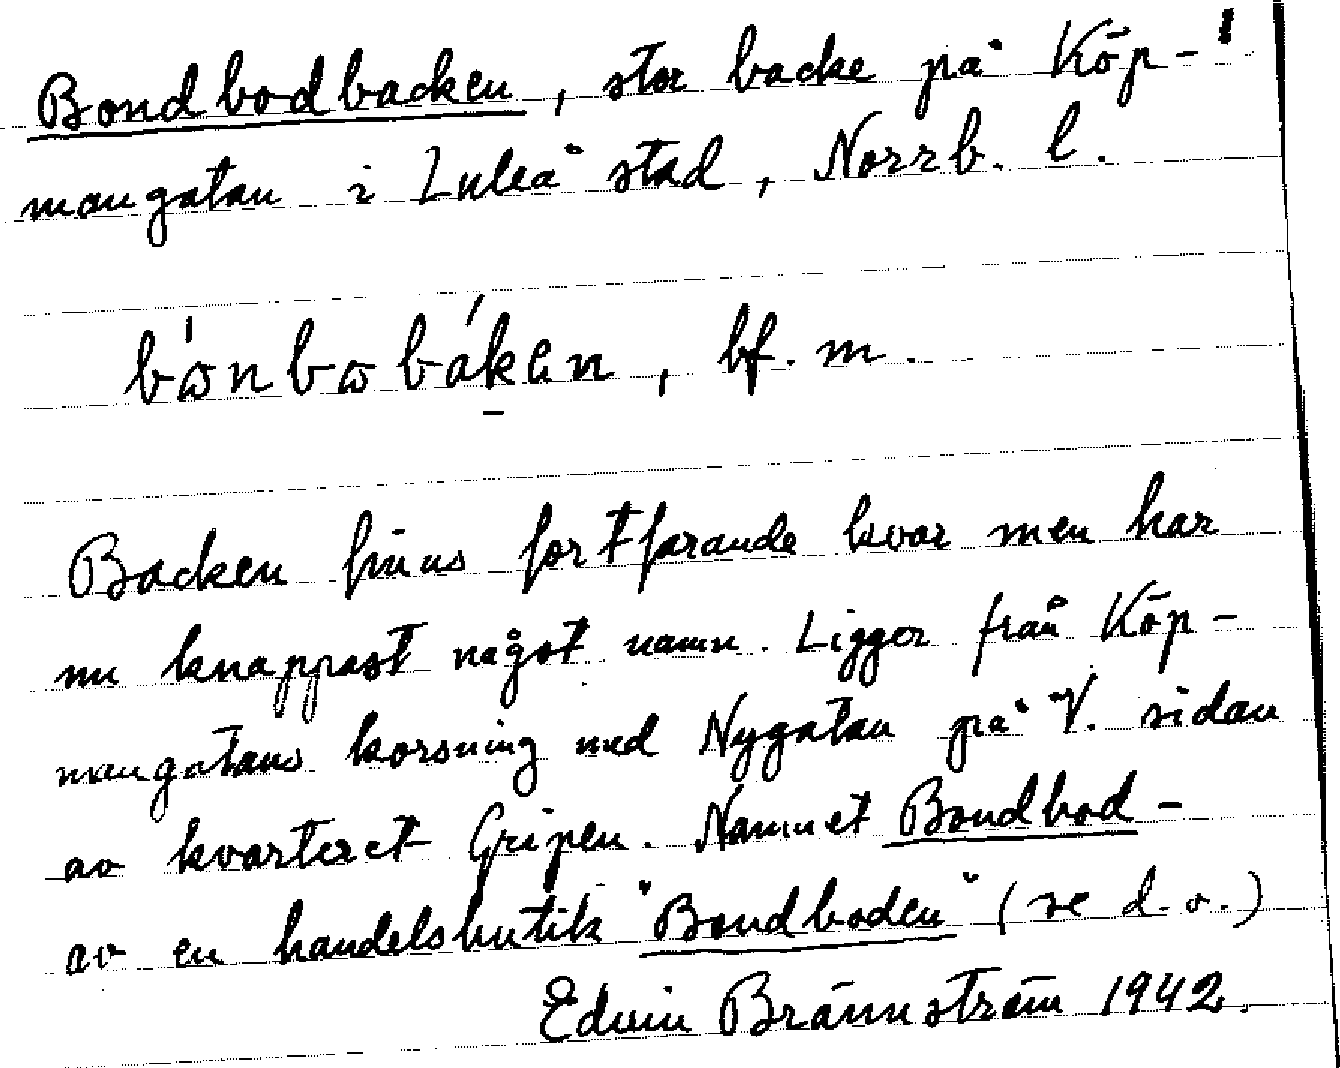 Bondbodbacken, stor backe på Köp-
mangatan i Luleå stad, Norrb. l.
bɷ́nbɷbák̠en, bf. m.
Backen finns fortfarande kvar men har
nu knappast något namn. Ligger från Köp-
mangatans korsning med Nygatan på V. sidan
av kvarteret Gripen. Namnet Bondbod-
av en handelsbutik "Bondboden" (se d.o.)
Edvin Brännström 1942.